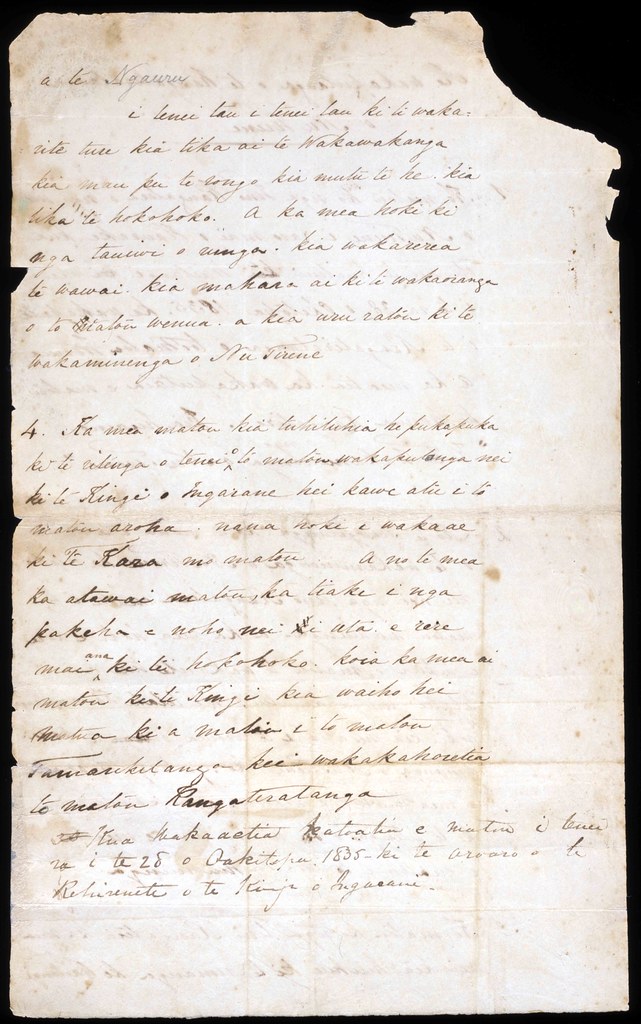 a te Ngauru
i tenei tau i tenei tau ki te waka-
rite ture kia tika ai te Wakawakanga
kia mau pu te rongo kia mutu te he. kia
tika te hokohoko. A ka mea hoki ki
nga tauiwi o runga. kia wakarerea
te wawai. kia mahara ai ki te wakaoranga
o to matou wenua. a kia uru ratou ki te
wakaminenga o Nu Tirene
4. Ka mea matou kia tuhituhia he pukapuka
ki te ritenga o tenei o to matou wakaputanga nei
ki te Kingi o Ingarane hei kawe atu i to
matou aroha. nana hoki i wakaae
ki te Kara mo matou A no te mea
ka atawai matou, ka tiaki i nga
pakeha e noho nei i uta. e rere
mai ana ki te hokohoko. koia ka mea ai
matou ki te Kingi kia waiho hei
matua ki a matou i to matou
Tamarikitanga kei wakakahoretia
te matou Rangatiratanga
Kua wakaaetia katoatia e matou i tenei
ra i te 28 o Oaketopa 1835 - ki te aroaro o te
Rehirenete o te Kingi o Ingarani.